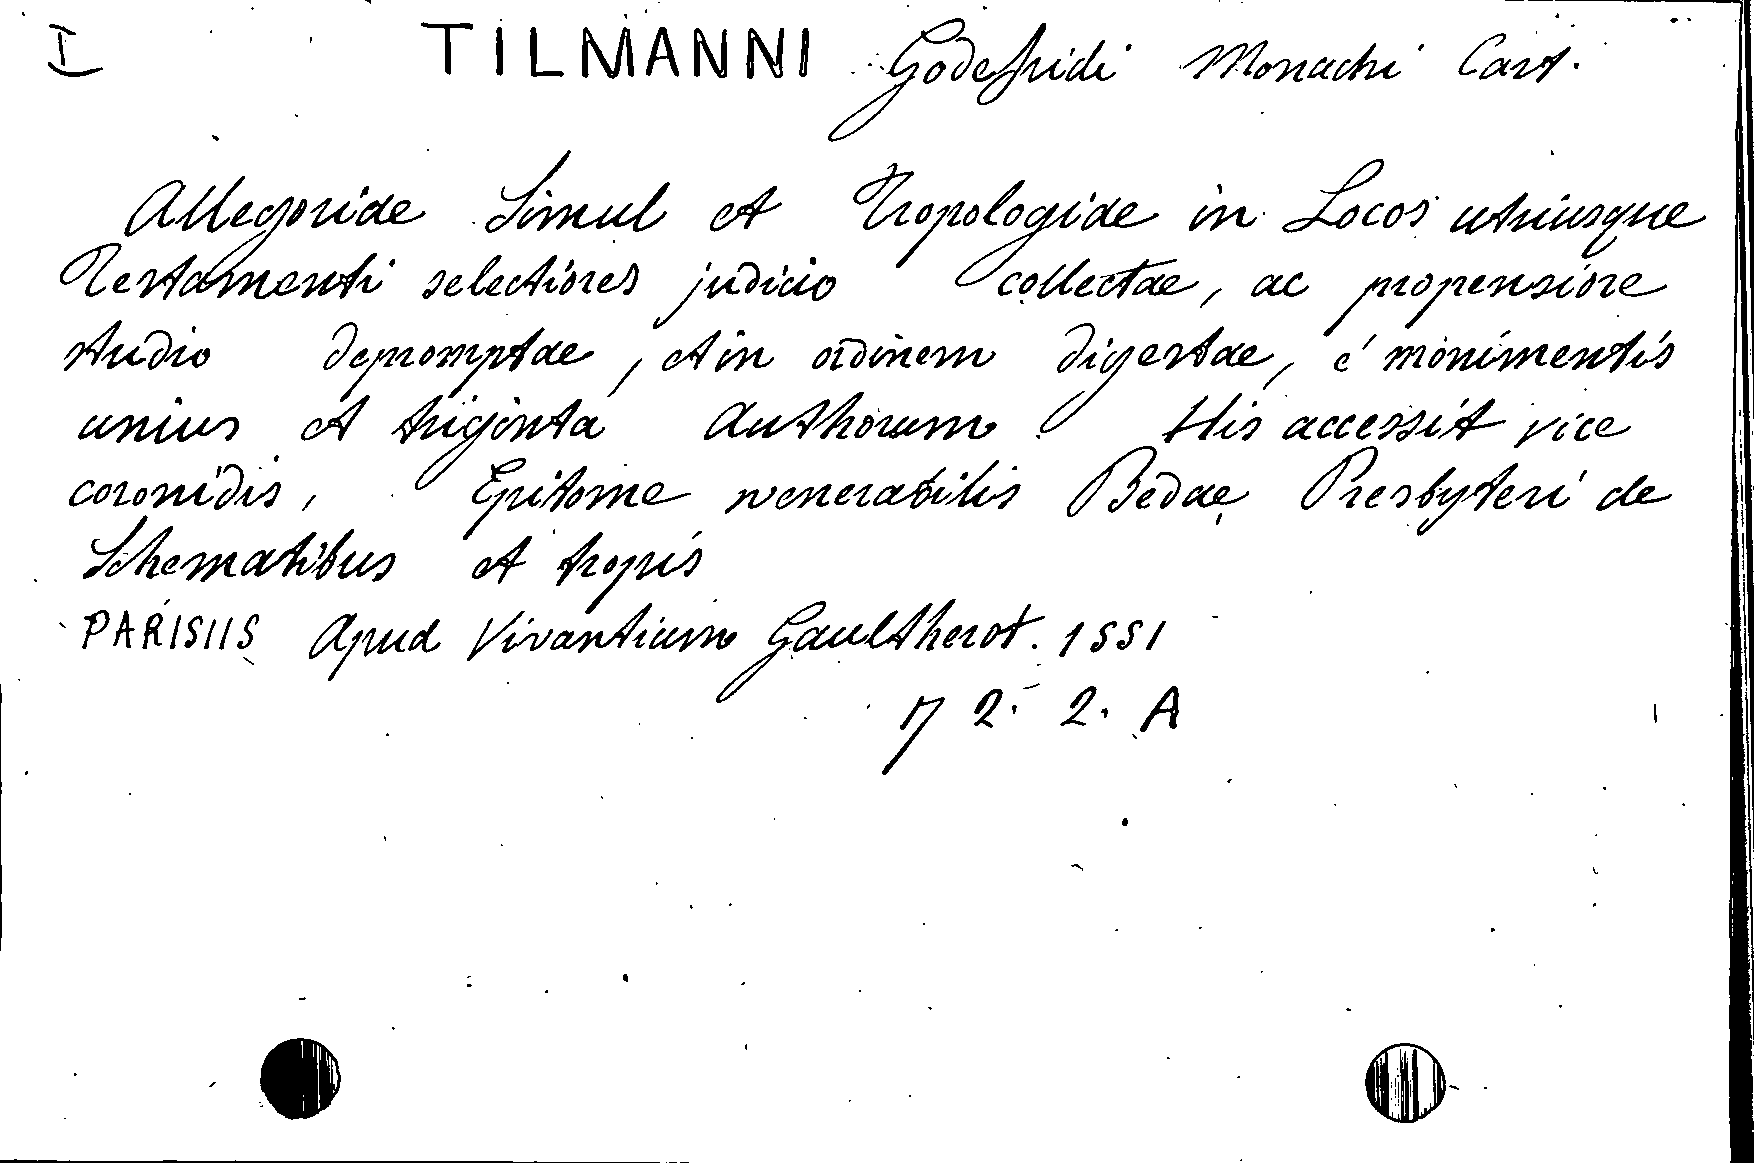 I TILMANNI Godefridi Monachi Cart.
Allegoriae Simul et Tropologiae in Locos utriusque
Testamenti selectiores judicio collectae, ac propensiore
studio depromptae, et in ordinem digestae, é monimentis
unius et triginta Authorum. His accessit vice
coronidis, Epitome venerabilis Bedae Presbyteri de
Schematibus et tropis
PARISIIS Apud Vivantium Gaultherot. 1551
72. 2. A